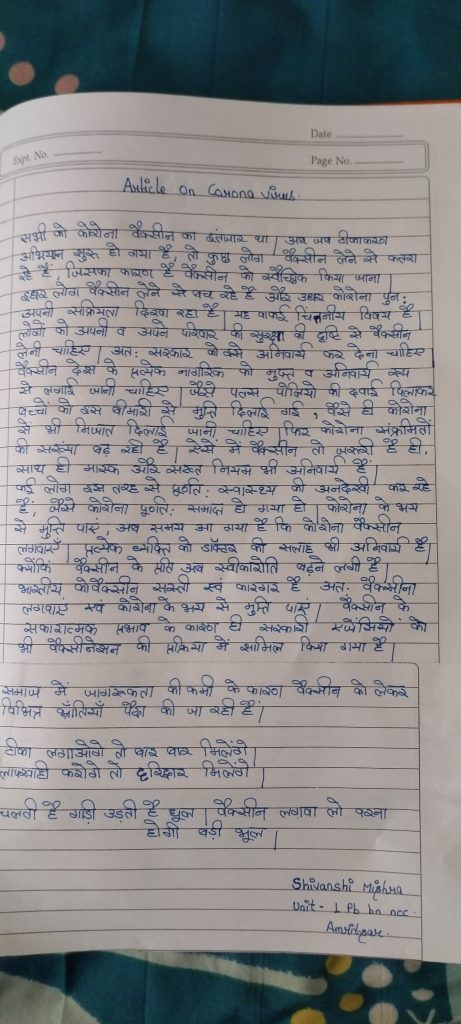 Date
Expt. No.
Page No.
Article on Corona virus.
सभी को कोरोना वैक्सीन का इंतजार था | अब जब टीकाकरण
अभियान शुरू हो गया है, तो कुछ लोग वैक्सीन लेने से कतरा
रहे हैं, जिसका कारण है वैक्सीन को स्वैच्छिक किया जाना |
इधर लोग वैक्सीन लेने से बच रहे हैं और उधर कोरोना पुन:
अपनी सक्रियता दिखा रहा है | यह वाकई चिंतनीय विषय है |
लोगों को अपनी व अपने परिवार की सुरक्षा की दृष्टि से वैक्सीन
लेनी चाहिए | अत: सरकार को इसे अनिवार्य कर देना चाहिए
वैक्सीन देश के प्रत्येक नागरिक को मुफ्त व अनिवार्य रूप
से लगाई जानी चाहिए | जैसे पल्स पोलियो की दवाई पिलाकर
बच्चों को इस बीमारी से मुक्ति दिलाई गई, वैसे ही कोरोना
से भी निजात दिलाई जानी चाहिए | फिर कोरोना संक्रमितों
की संख्या बढ़ रही है | ऐसे में वैक्सीन तो जरूरी है ही,
साथ ही मास्क और सख्त नियम भी अनिवार्य हैं |
कई लोग इस तरह से पूर्णत: स्वास्थ्य की अनदेखी कर रहे
हैं, जैसे कोरोना पूर्णत: समाप्त हो गया हो | कोरोना के भय
से मुक्ति पाएं, अब समय आ गया है कि कोरोना वैक्सीन
लगवाएँ | प्रत्येक व्यक्ति को डॉक्टर की सलाह भी अनिवार्य है |
क्योंकि वैक्सीन के प्रति अब स्वीकारोक्ति बढ़ने लगी है |
भारतीय कोवैक्सीन सस्ती एवं कारगर है अत: वैक्सीना
लगवाएं एवं कोरोना के भय से मुक्ति पाएं | वैक्सीन के
सकारात्मक प्रभाव के कारण ही सरकारी एजेंसियों को
भी वैक्सीनेशन की प्रक्रिया में शामिल किया गया है |
समाज में जागरूकता की कमी के कारण वैक्सीन को लेकर
विभिन्न भ्रांतियाँ पैदा की जा रही हैं |
टीका लगाओगे तो बार बार मिलेंगे |
लापरवाही करोगे तो हरिद्वार मिलेंगे |
चलती है गाड़ी उड़ती है धूल | वैक्सीन लगवा लो वरना
होगी बड़ी भूल |
Shivanshi Mishra
Unit - 1 Pb bn ncc.
Amritsar.